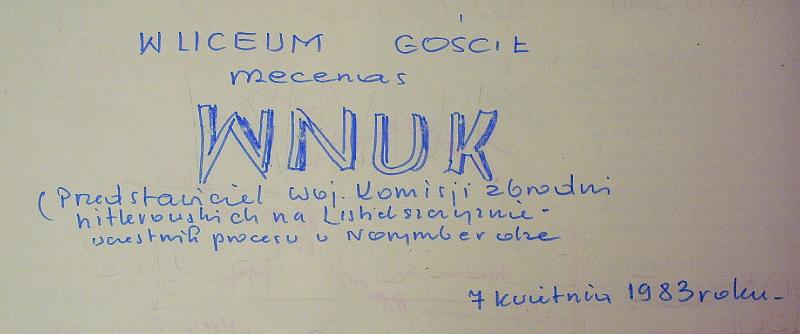 W LICEUM GOŚCIŁ
mecenas
WNUK
(Przedstawiciel Woj. Komisji zbrodni
hitlerowskich na Lubelszczyźnie -
uczestnik procesu w Norymberdze
7 kwietnia 1983 roku -